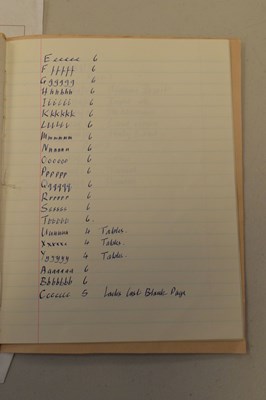 Eeeeee 6
Ffffff 6
Gggggg 6
Hhhhhh 6
Iiiiii 6
Kkkkkk 6
Llllll 6
Mmmmmm 6
Nnnnnn 6
Oooooo 6
Pppppp 6
Qqqqqq 6
Rrrrrr 6
Ssssss 6
Tttttt 6.
Uuuuuu 4 Tables.
Xxxxxx 4 Tables.
Yyyyyy 4 Tables.
Aaaaaaa 6
Bbbbbbb 6
Ccccccc 5 Lacks Last Blank Page